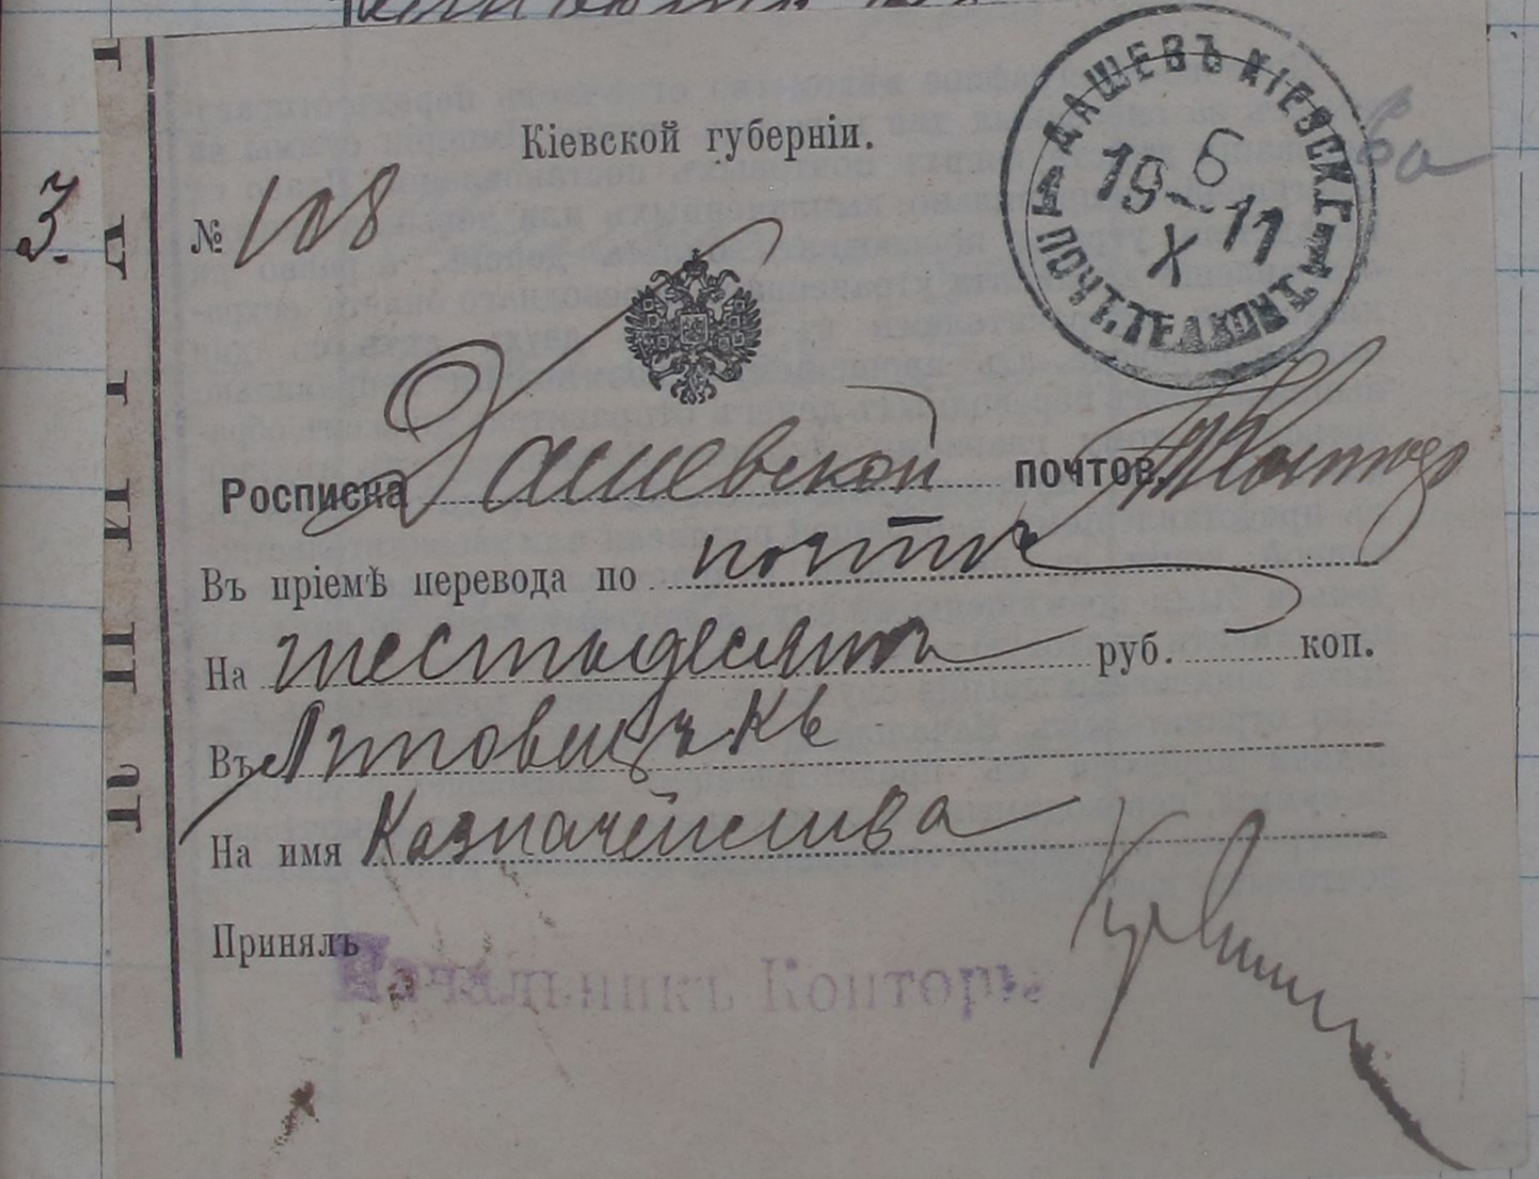 Кіевской губерніи.
3.
№ 108
ДАШЕВЪ КІЕВСК.Г.
6
19-11
X
ПОЧТ.ТЕЛ.КОНТ.
6а
Росписка Дашевской почтов. Т Контор
Въ пріемѣ перевода по почтѣ
На шестьдесятъ руб. коп.
Въ Липовецък
На имя Казначейства
Принялъ
Начальникъ Конторы